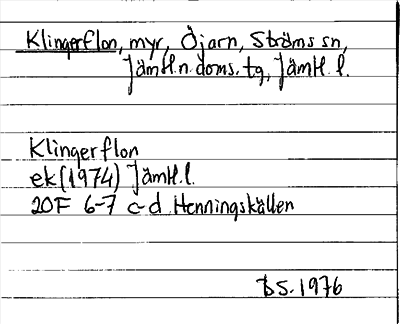 Klingerflon, myr, Öjarn, Ströms sn,
Jämtl.n.doms.tg, Jämtl. l.
Klingerflon
ek (1974) Jämtl.l.
20F 6-7 c-d Henningskällen
BS. 1976